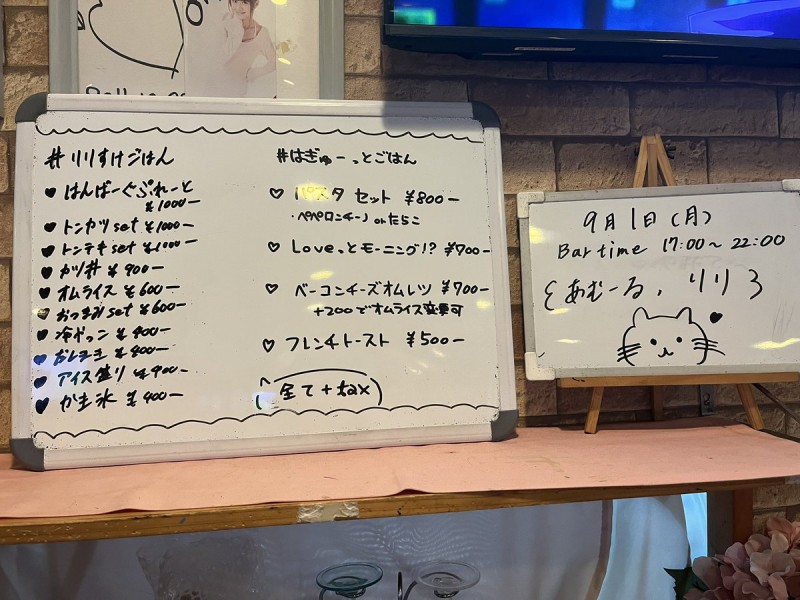 #りりすけごはん
♥ はんばーぐぷれーと
¥1000−
♥ トンカツset ¥1000−
♥ トンテキset ¥1000−
♥ カツ丼 ¥900−
♥ オムライス ¥600−
♥ おつまみset ¥600−
♥ 冷やっこ ¥400−
♥ ¥400−
♥ アイス盛り ¥400−
♥ かき氷 ¥400−
#はぎゅーっとごはん
♡ パスタ セット ¥800−
・ペペロンチーノ orたらこ
♡ Loveっとモーニング!? ¥700−
♡ ベーコンチーズオムレツ ¥700−
+200でオムライス変更可
♡ フレンチトースト ¥500−
全て+tax
9月1日(月)
Bar time 17:00〜22:00
あむーる、りり